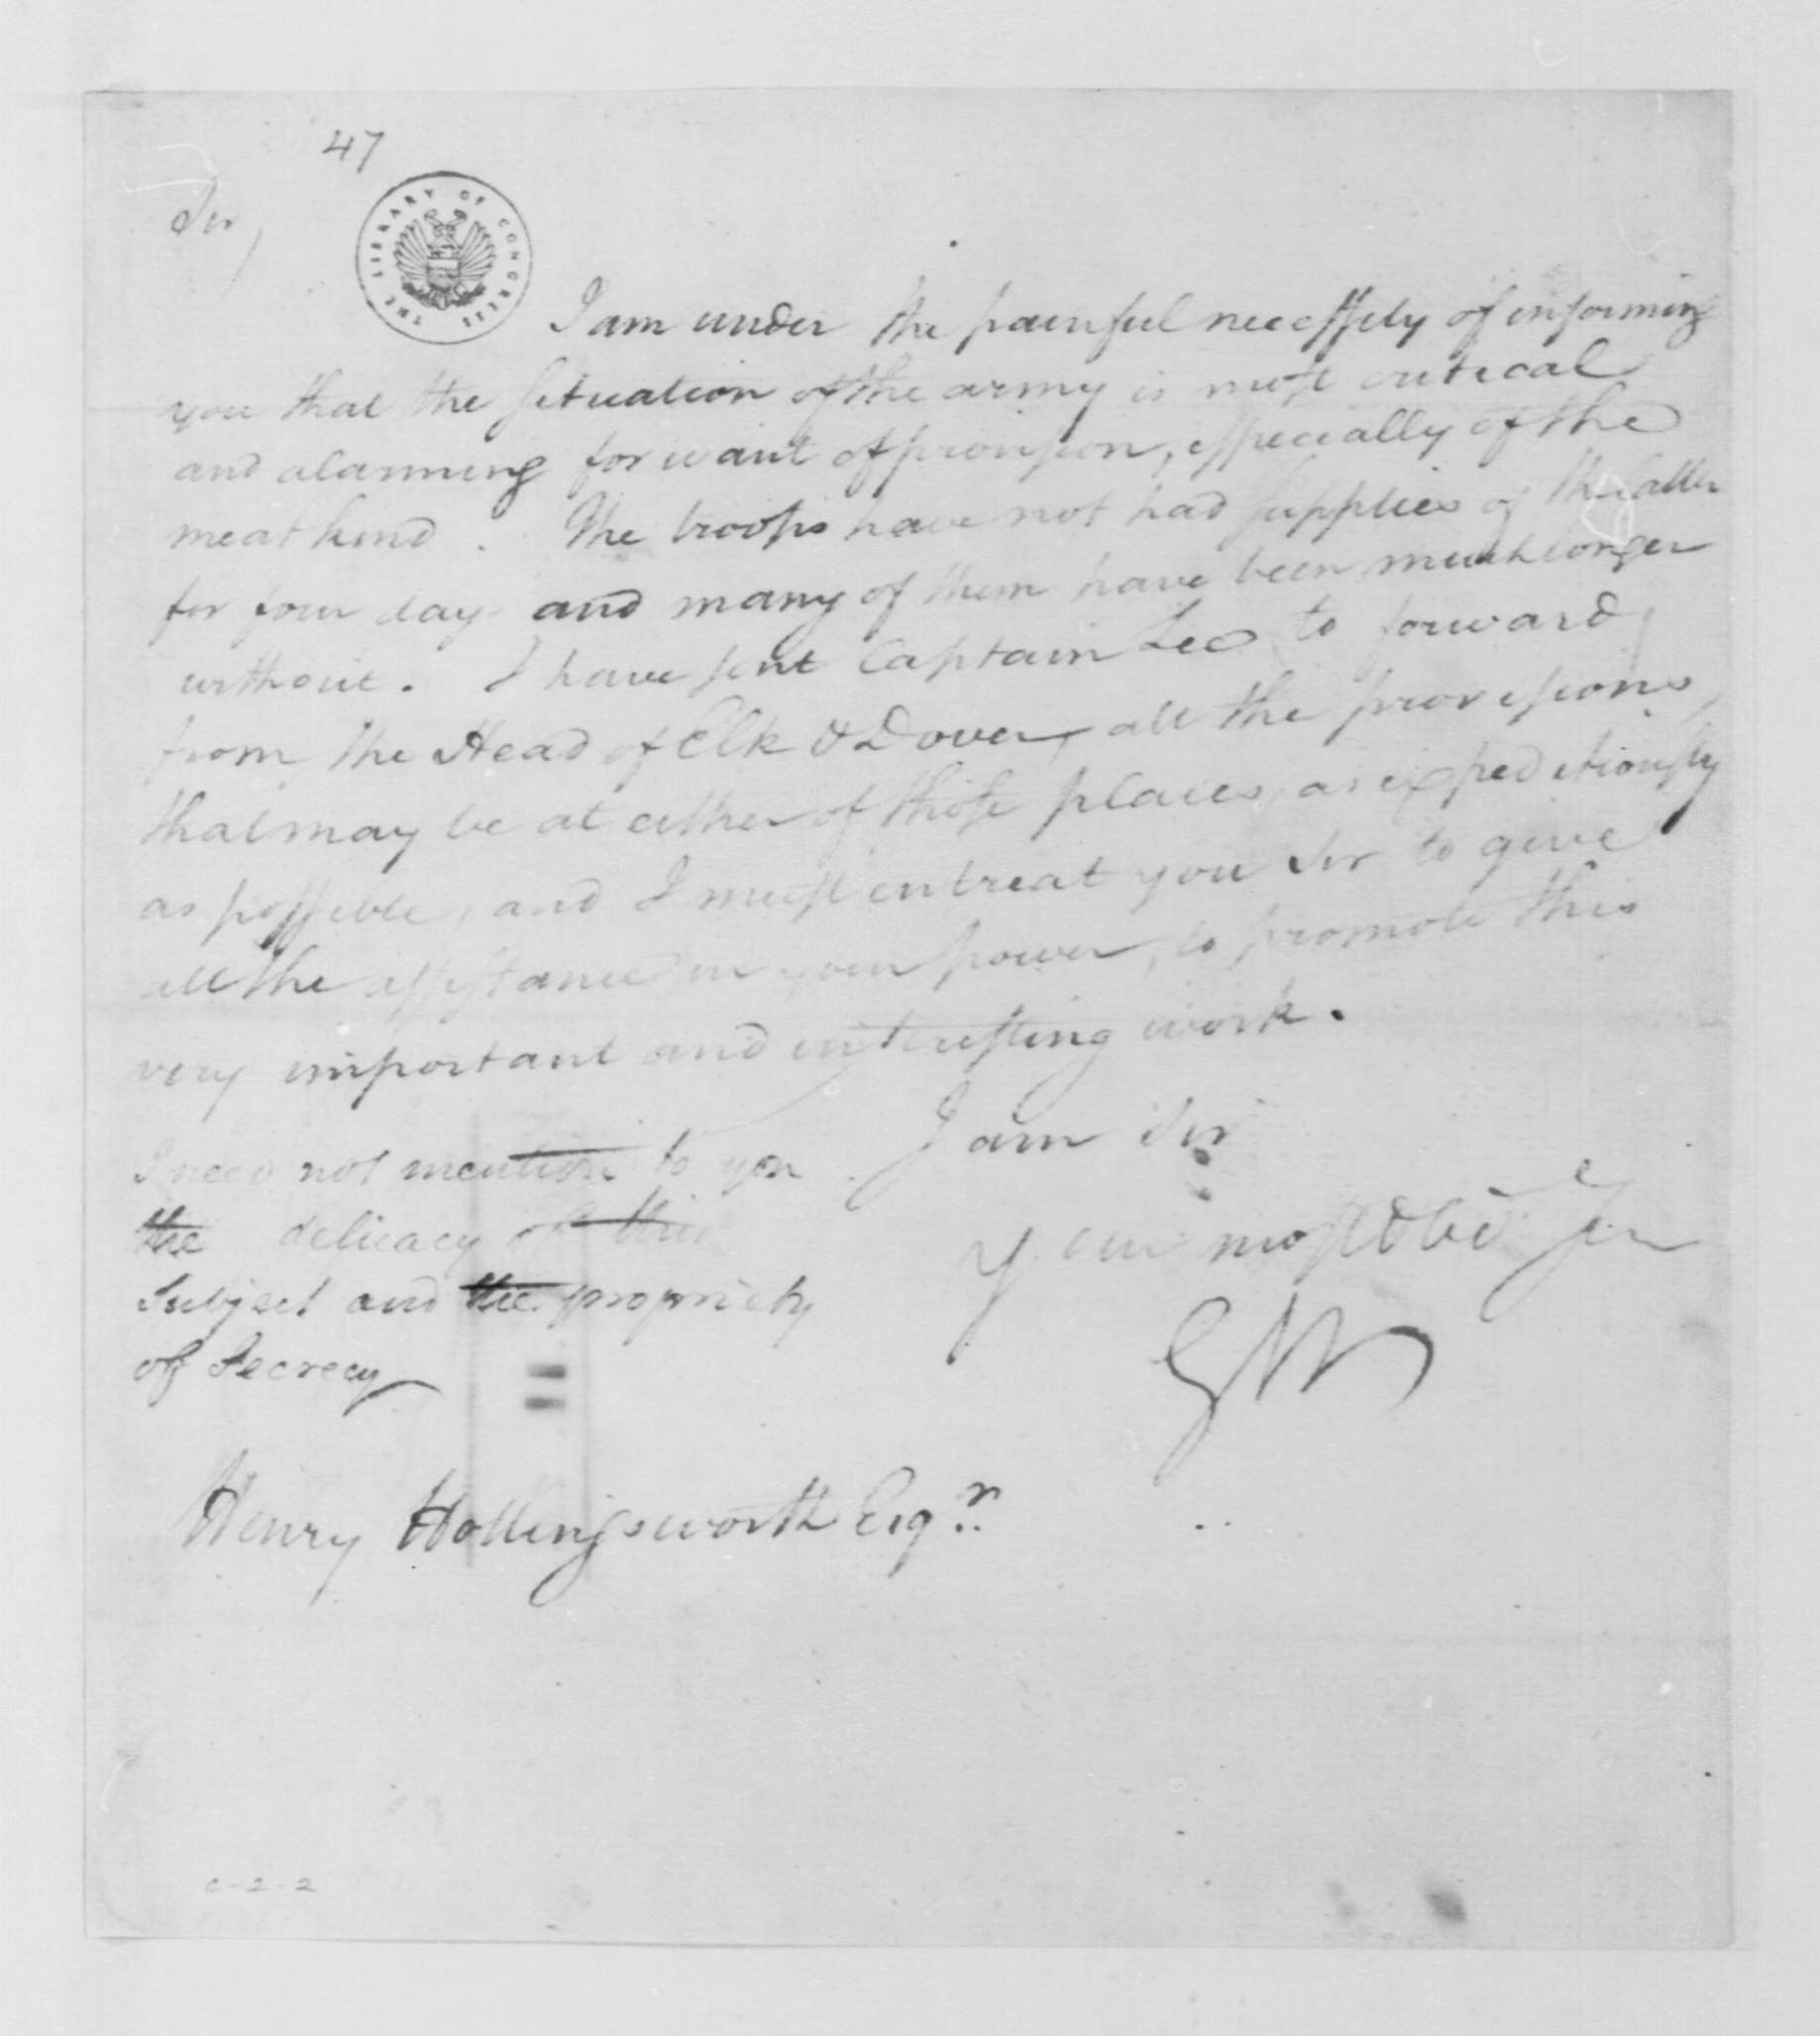 47
Sir,
THE LIBRARY OF CONGRESS
I am under the painful necessity of informing
you that the situation of the army is most critical
and alarming for want of provision, especially of the
meat kind. The troops have not had supplies of the latter
for four day and many of them have been much longer
without. I have sent Captain Lee to forward
from the Head of Elk & Dover, all the provisions,
that may be at either of those places, as expeditiously
as possible, and I must entreat you Sir to give
all the assistance in your power, to promote this
very important and interesting work.
I am Sir
Your most Obed Ser
GW
I need not mention to you
the delicacy of this
Subject and the propriety
of Secrecy
Henry Hollingsworth Esqr.
C-2-2